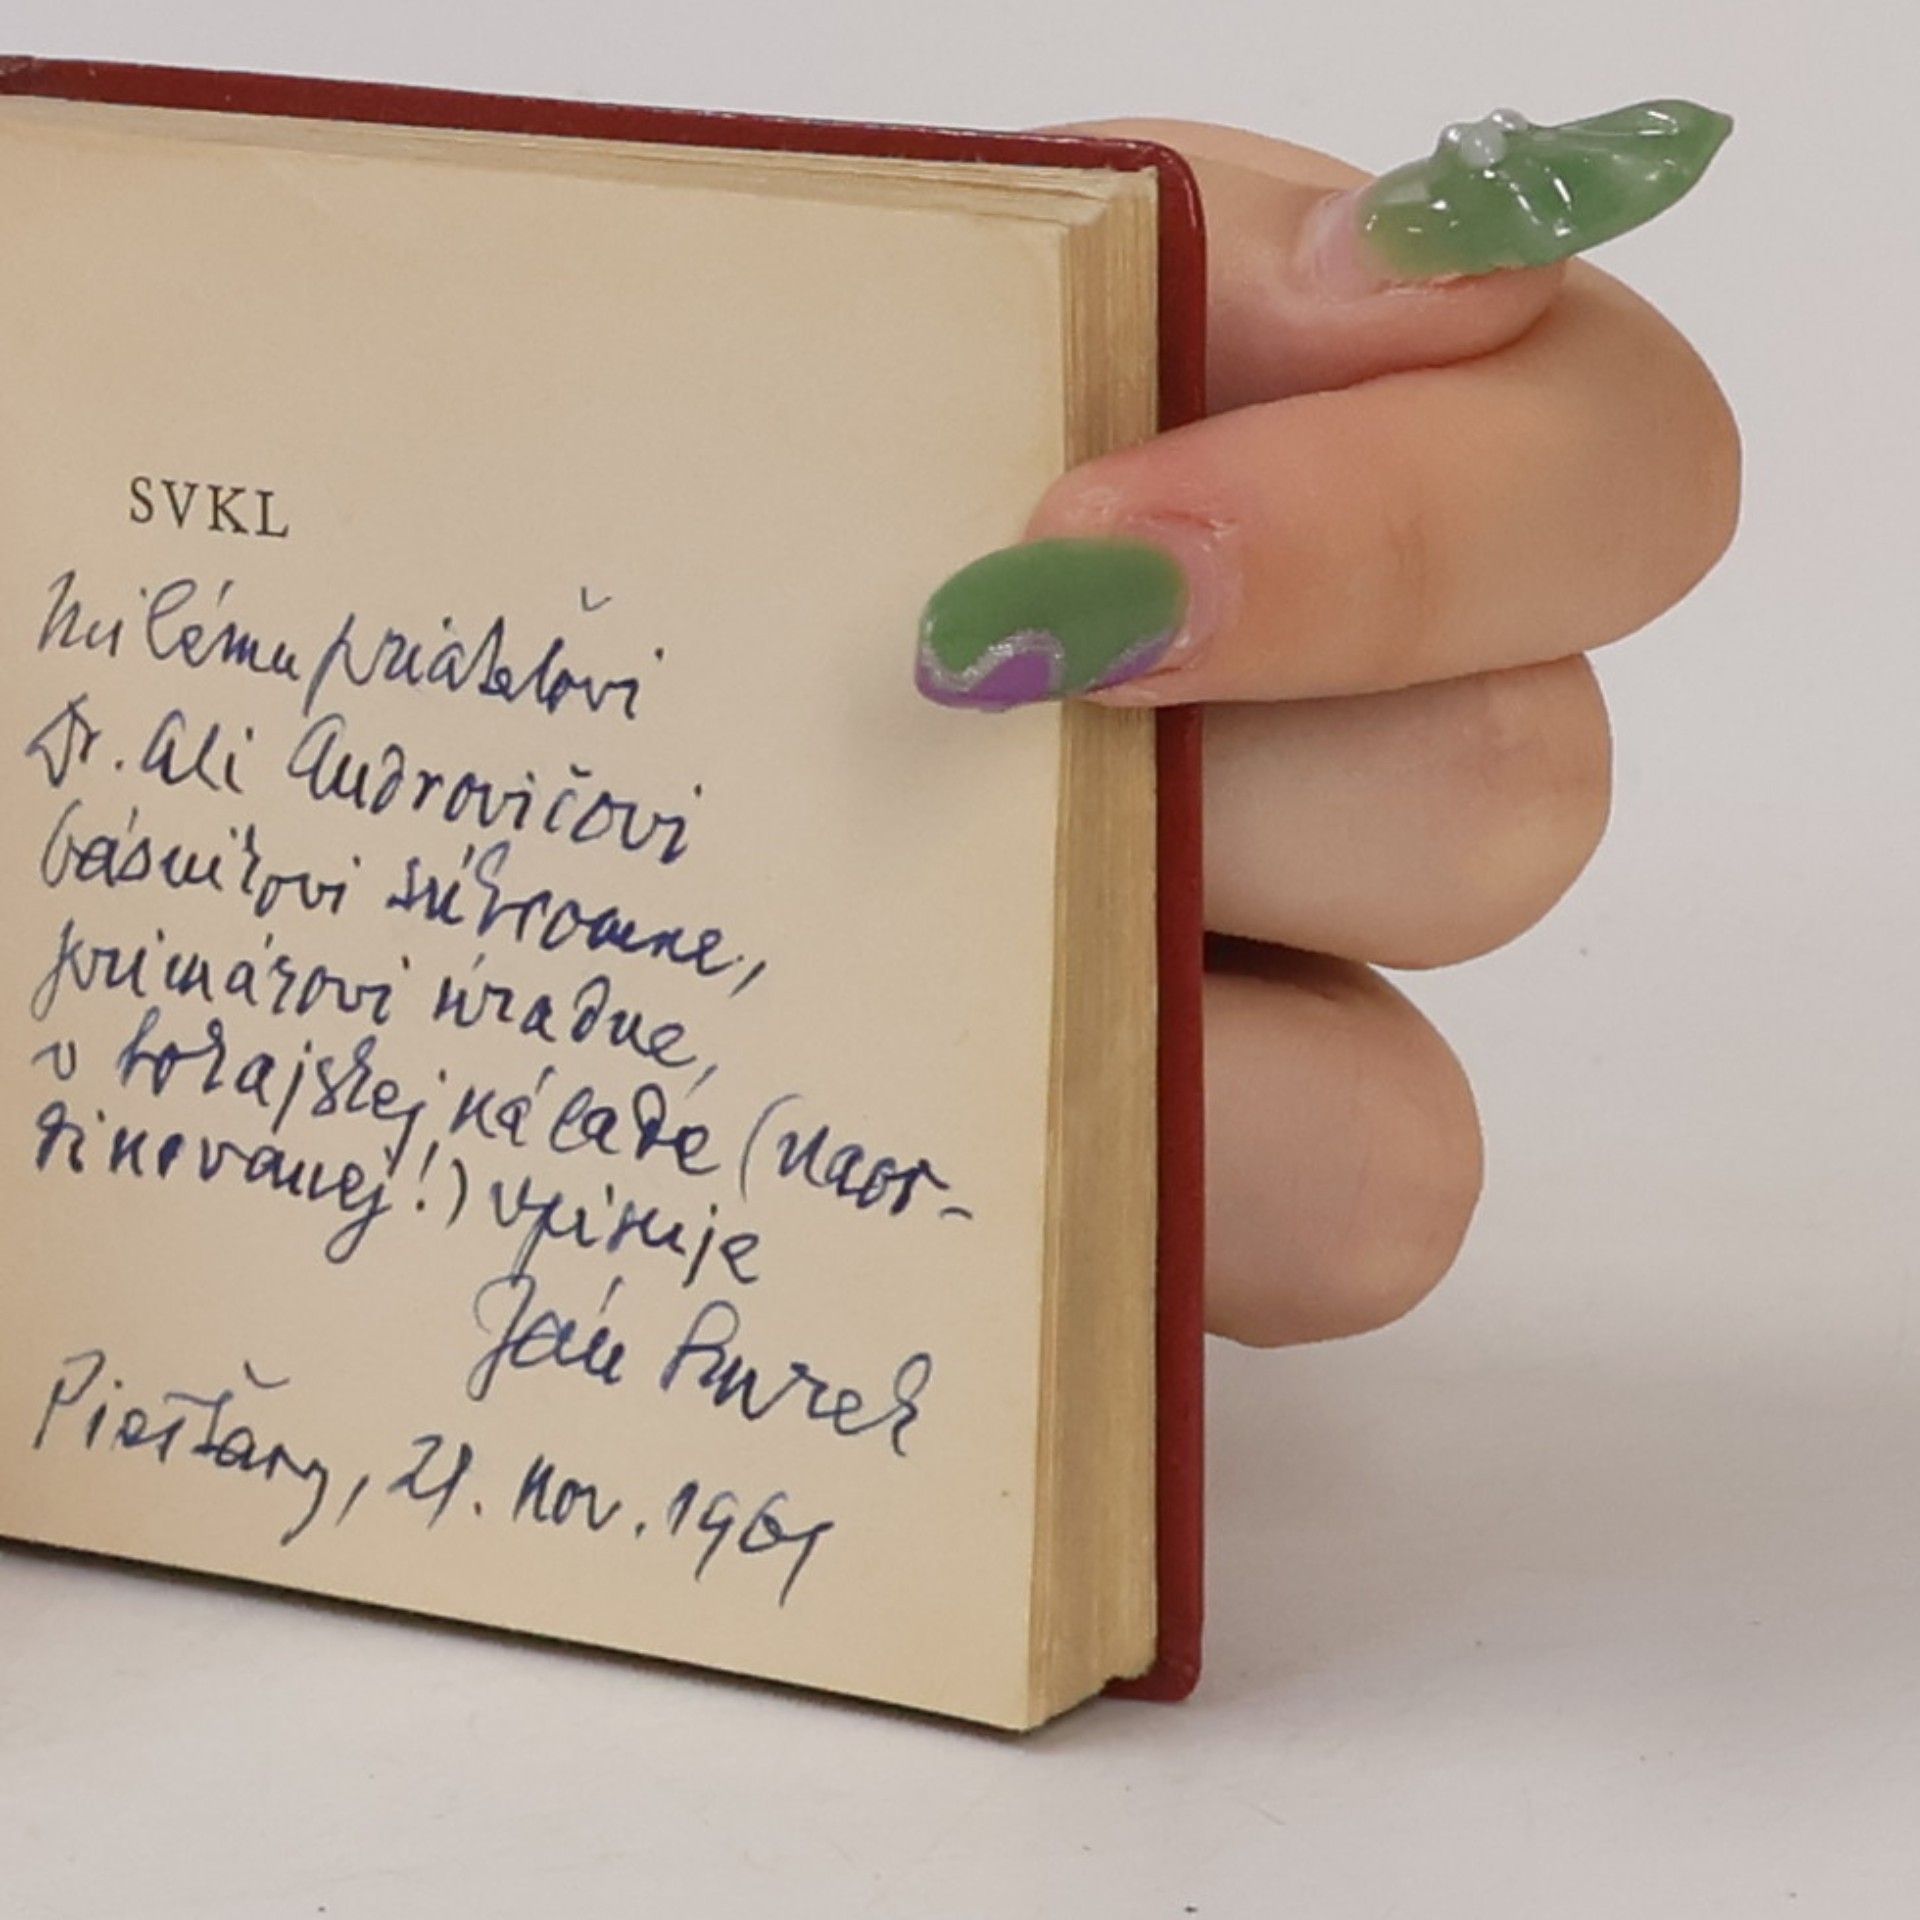 SVKL
Milému priateľovi
Dr. Ali Androvičovi
básnikovi súkromne,
primárovi úradne,
v tokajskej nálade (naor-
dinovanej!) vpisuje
Ján Smrek
Piešťany, 21. nov. 1961